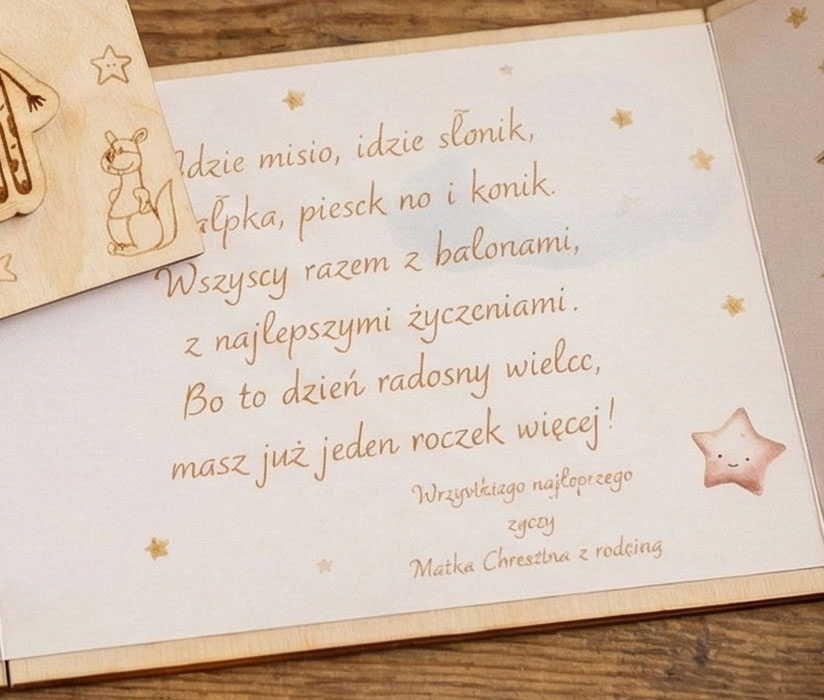 Idzie misio, idzie słonik,
ałpka, piesek no i konik.
Wszyscy razem z balonami,
z najlepszymi życzeniami.
Bo to dzień radosny wielce,
masz już jeden roczek więcej!
życzy
Matka z rodziną